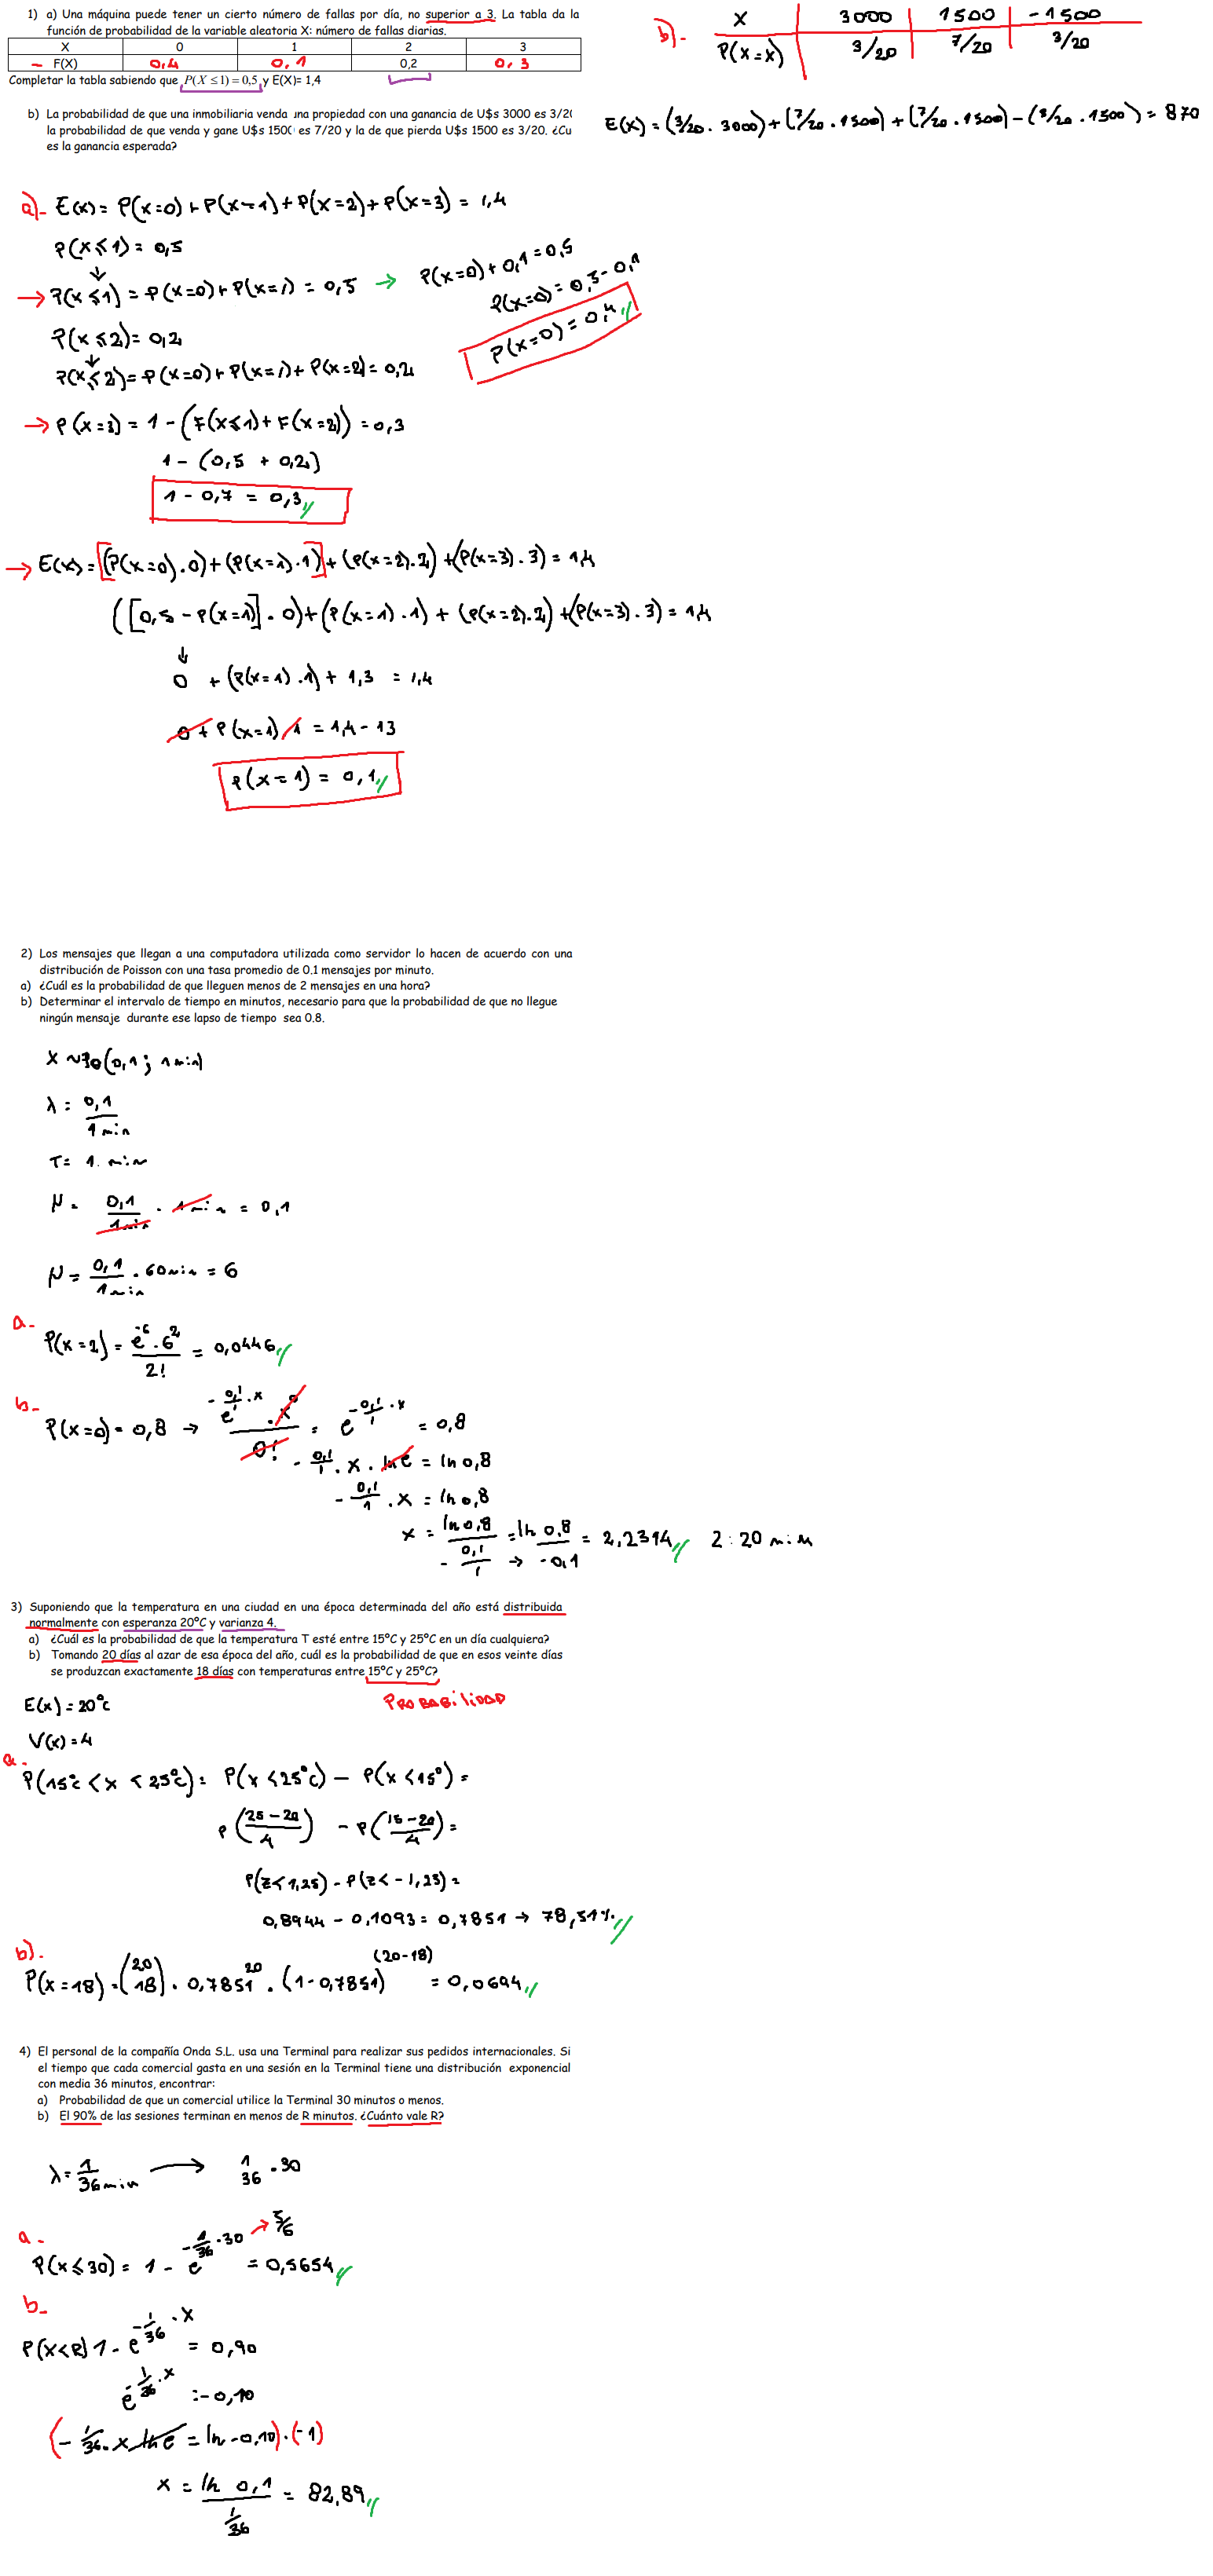 1) a) Una máquina puede tener un cierto número de fallas por día, no superior a 3. La tabla da la
función de probabilidad de la variable aleatoria X: número de fallas diarias.
X 0 1 2 3
– F(X) 0,4 0,1 0,2 0,3
Completar la tabla sabiendo que P(X ≤ 1) = 0,5 y E(X)= 1,4
b) La probabilidad de que una inmobiliaria venda una propiedad con una ganancia de U$s 3000 es 3/20
la probabilidad de que venda y gane U$s 1500 es 7/20 y la de que pierda U$s 1500 es 3/20. ¿Cu
es la ganancia esperada?
b).- X 3000 1500 -1500
P(X=x) 3/20 7/20 3/20
E(X) = (3/20 . 3000) + (7/20 . 1500) + (7/20 . 1500) - (3/20 . 1500) = 870
a).- E(x) = P(x=0) + P(x=1) + P(x=2) + P(x=3) = 1,4
P(x≤1) = 0,5
↓
→ P(x≤1) = P(x=0) + P(x=1) = 0,5 → P(x=0) + 0,1 = 0,5
P(x=0) = 0,5 - 0,1
P(x=0) = 0,4
P(x≤2) = 0,2
↓
P(x≤2) = P(x=0) + P(x=1) + P(x=2) = 0,2
→ P(x=3) = 1 - (F(x≤1) + F(x=2)) = 0,3
1 - (0,5 + 0,2)
1 - 0,7 = 0,3
→ E(x) = [(P(x=0).0) + (P(x=1).1)] + (P(x=2).2) + (P(x=3).3) = 1,4
([0,5 - P(x=1)] . 0) + (P(x=1).1) + (P(x=2).2) + (P(x=3).3) = 1,4
↓
0 + (P(x=1).1) + 1,3 = 1,4
0 + P(x=1) 1 = 1,4 - 13
P(x=1) = 0,1
2) Los mensajes que llegan a una computadora utilizada como servidor lo hacen de acuerdo con una
distribución de Poisson con una tasa promedio de 0.1 mensajes por minuto.
a) ¿Cuál es la probabilidad de que lleguen menos de 2 mensajes en una hora?
b) Determinar el intervalo de tiempo en minutos, necesario para que la probabilidad de que no llegue
ningún mensaje durante ese lapso de tiempo sea 0.8.
X ~ Po(0,1 ; 1 min)
λ = 0,1 / 1 min
T = 1. min
μ = 0,1 / 1 min . 1 min = 0,1
μ = 0,1 / 1 min . 60 min = 6
a.- P(x=2) = e^-6 . 6^2 / 2! = 0,0446
b.- P(x=0) = 0,8 → e^(-0,1/1 . x) . x^0 / 0! = e^(-0,1/1 . x) = 0,8
- 0,1/1 . x . ln e = ln 0,8
- 0,1/1 . x = ln 0,8
x = ln 0,8 / - 0,1/1 = ln 0,8 / → -0,1 = 2,2314 2:20 min
3) Suponiendo que la temperatura en una ciudad en una época determinada del año está distribuida
normalmente con esperanza 20ºC y varianza 4.
a) ¿Cuál es la probabilidad de que la temperatura T esté entre 15ºC y 25ºC en un día cualquiera?
b) Tomando 20 días al azar de esa época del año, cuál es la probabilidad de que en esos veinte días
se produzcan exactamente 18 días con temperaturas entre 15ºC y 25ºC?
PROBABILIDAD
E(x) = 20°C
V(x) = 4
a.- P(15°C < x < 25°C) = P(x < 25°C) - P(x < 15°) =
P(25-20 / 4) - P(15-20 / 4) =
P(Z < 1,25) - P(Z < -1,25) =
0,8944 - 0,1093 = 0,7851 → 78,51%
b).- P(x=18) = (20 18) . 0,7851^20 . (1-0,7851)^(20-18) = 0,0694
4) El personal de la compañía Onda S.L. usa una Terminal para realizar sus pedidos internacionales. Si
el tiempo que cada comercial gasta en una sesión en la Terminal tiene una distribución exponencial
con media 36 minutos, encontrar:
a) Probabilidad de que un comercial utilice la Terminal 30 minutos o menos.
b) El 90% de las sesiones terminan en menos de R minutos. ¿Cuánto vale R?
λ = 1 / 36 min → 1 / 36 . 30
a.- P(x≤30) = 1 - e^(-1/36 . 30) → 5/6 = 0,5654
b.- P(X<R) 1 - e^(-1/36 . x) = 0,90
e^(-1/36 . x) = -0,10
(- 1/36 . x ln e = ln -0,10) . (-1)
x = ln 0,1 / 1/36 = 82,89